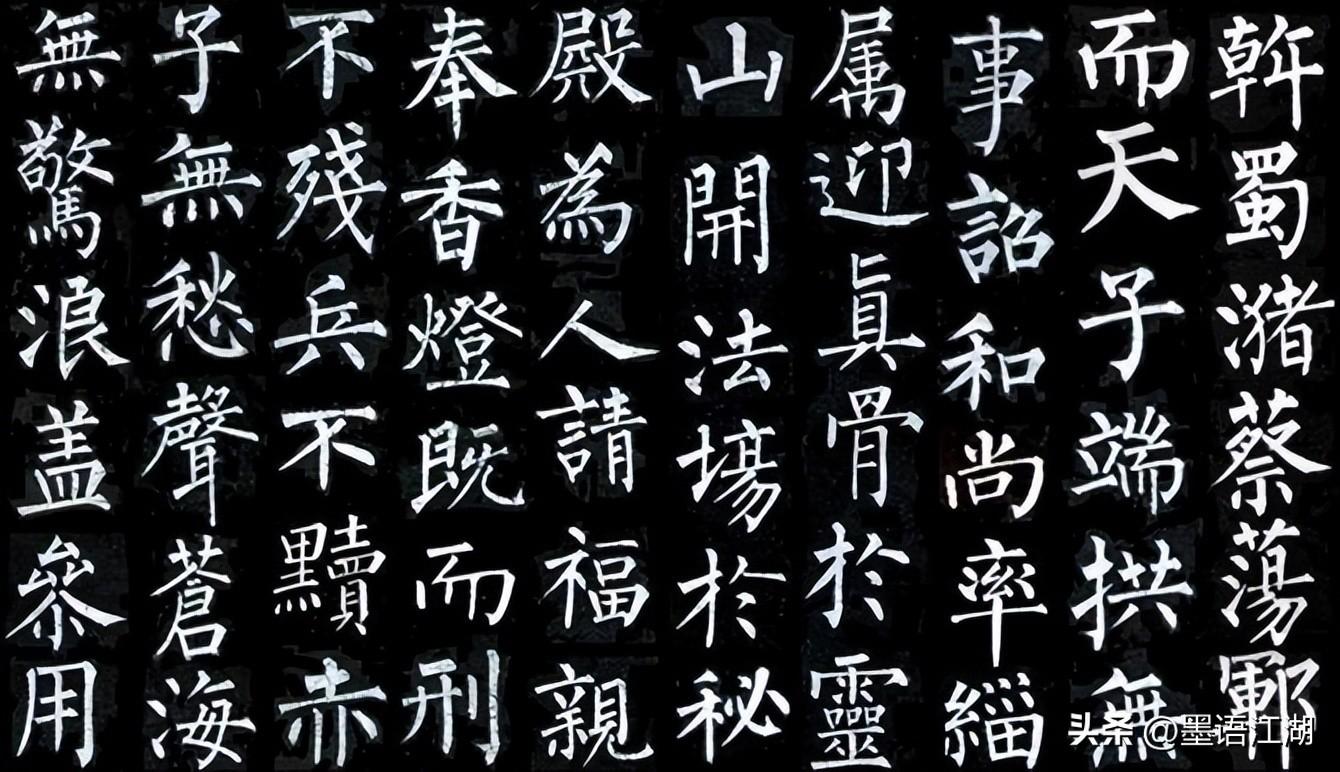 斡蜀瀦蔡蕩鄆
而天子端拱無
事詔和尚率緇
属迎眞骨於靈
山開法場於秘
殿為人請福親
奉香燈既而刑
不殘兵不黷赤
子無愁聲蒼海
無驚浪盖參用
头条 @墨语江湖